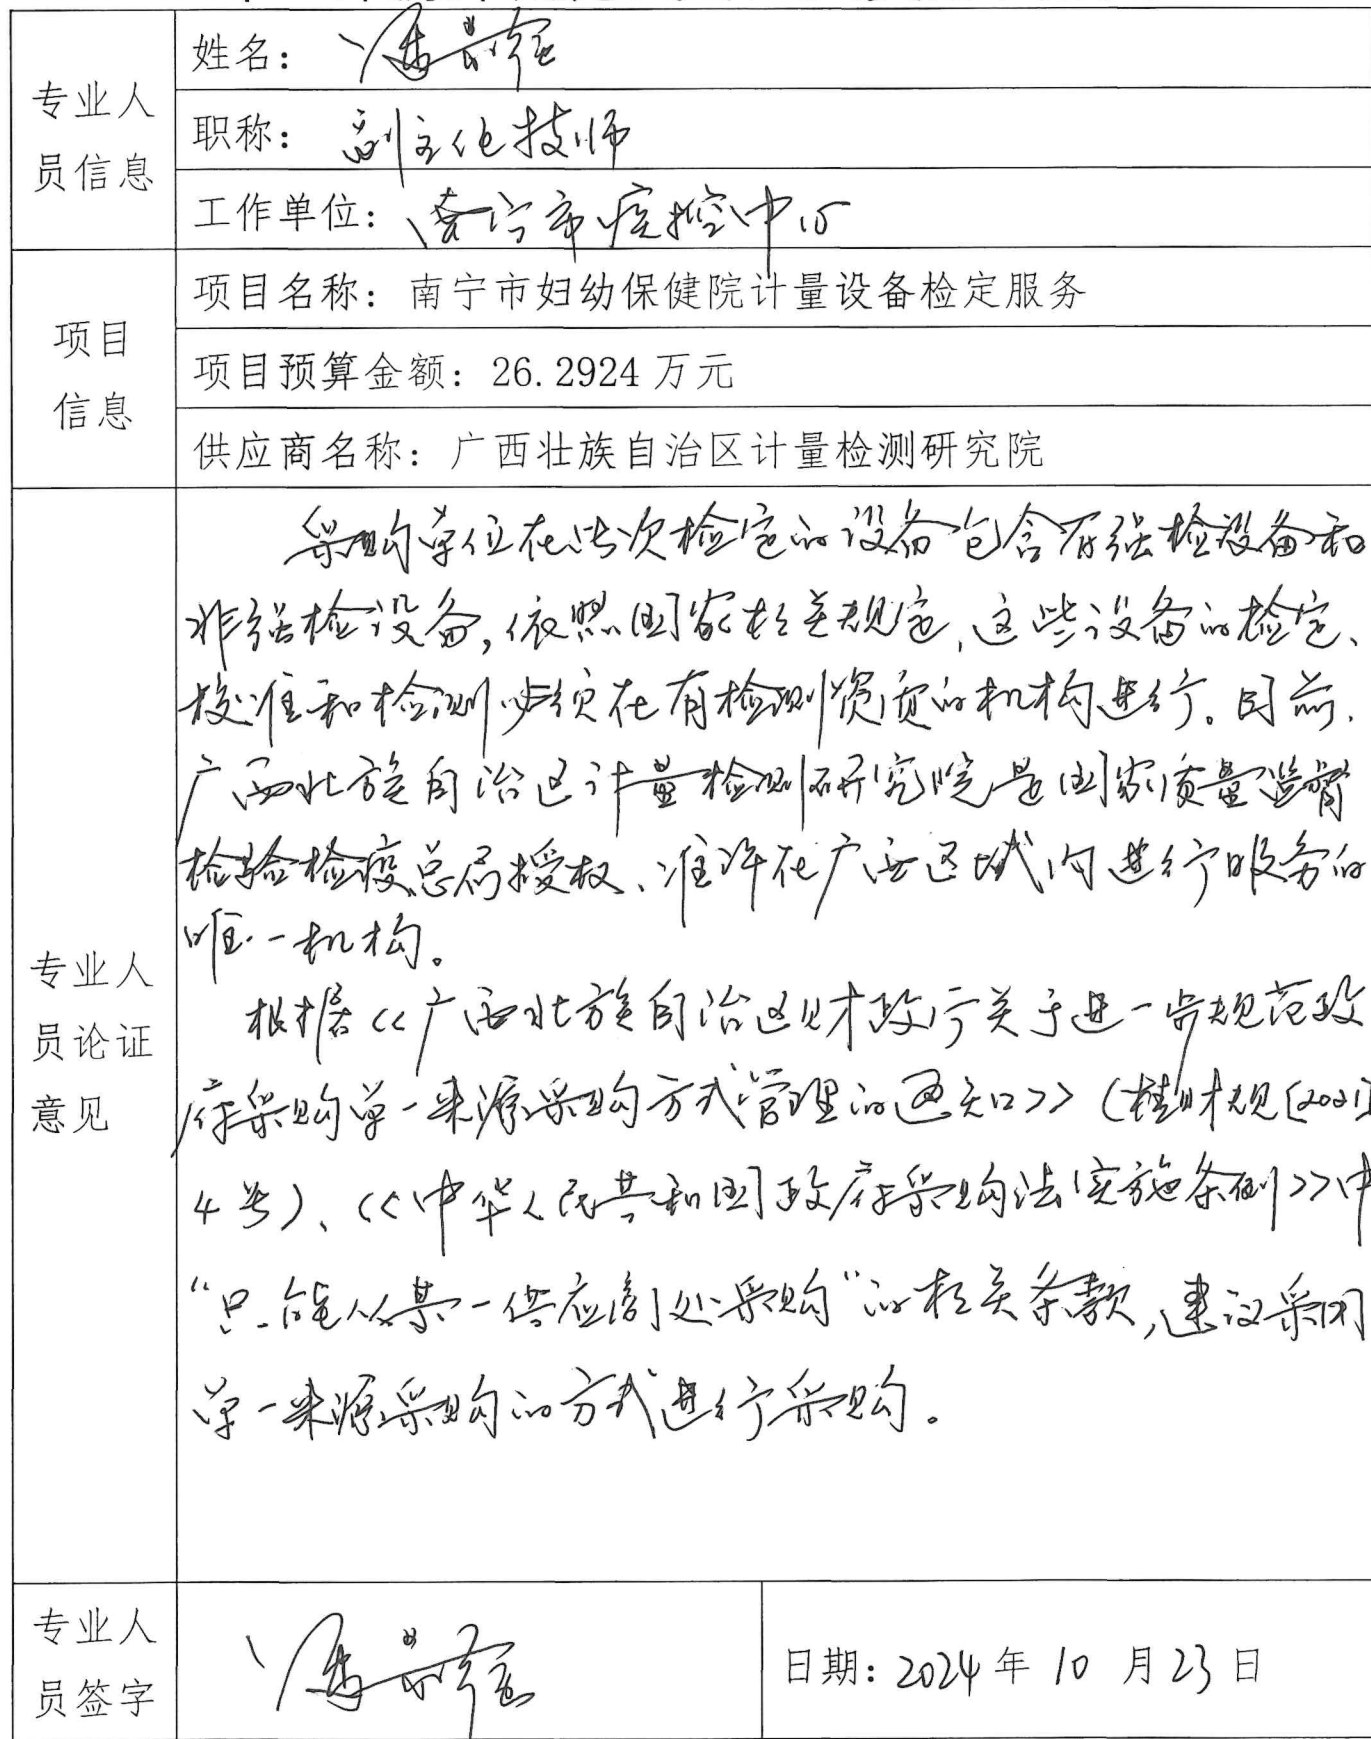 专业人
员信息
姓名：
职称：副主任技师
工作单位：南宁市疾控中心
项目
信息
项目名称：南宁市妇幼保健院计量设备检定服务
项目预算金额：26.2924万元
供应商名称：广西壮族自治区计量检测研究院
专业人
员论证
意见
采购单位在此次检定的设备包含有强检设备和
非强检设备,依照国家相关规定,这些设备的检定、
校准和检测必须在有检测资质的机构进行。目前,
广西壮族自治区计量检测研究院是国家质量监督
检验检疫总局授权、准许在广西区域内进行服务的
唯一机构。
根据《广西壮族自治区财政厅关于进一步规范政
府采购单一来源采购方式管理的通知》(桂财规[2021]
4号)、《中华人民共和国政府采购法实施条例》中
“只能从某一供应商处采购”的相关条款,建议采用
单一来源采购的方式进行采购。
专业人
员签字
日期：2024年10月23日